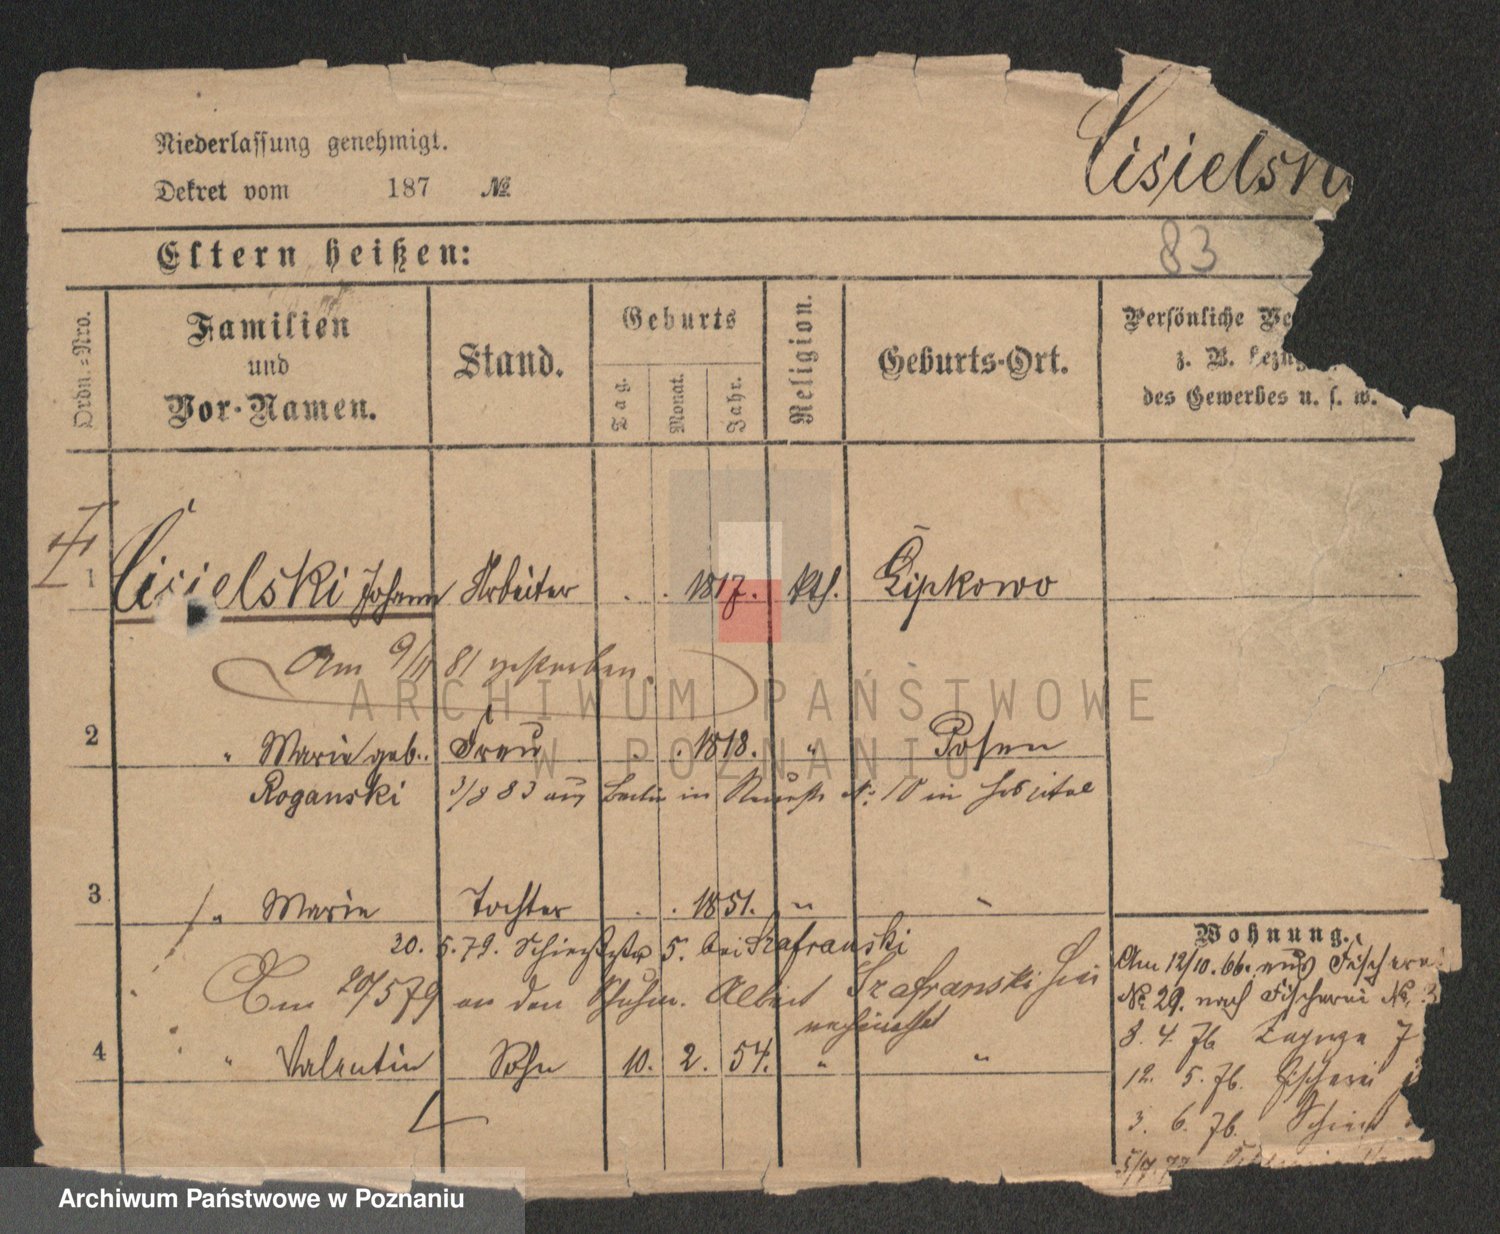 Niederlassung genehmigt.
Cisielski
Dekret vom 187 №
Eltern heißen:
83
Ordn.=Nro.
Familien
und
Vor-Namen.
Stand.
Geburts
Tag.
Monat.
Jahr.
Religion.
Geburts-Ort.
Persönliche Ve
z. B. bezüg
des Gewerbes u. s. w.
1 Cisielski Johann Arbeiter . . 1817. kth. Lipkowo
Am 9/11 81 gestorben.
2 " Marie geb. Frau . . 1818. " Posen
Roganski 3/8 83 aus Berlin in № 10 im Hospital
3 " Marie Tochter . . 1851. " "
20. 5. 79. 5. bei Szafranski
Am 20/5 79 an den Schuhm. Albert Szafranski hier
verheirathet
4 " Valentin Sohn 10. 2. 54. " "
Wohnung.
Am 12/10. 66. aus Fischerei
№ 29. nach Fischerei № 3
8. 4. 76 Zagorze 7
12. 5. 76. Fischerei
3. 6. 76.
5/7 77
ARCHIWUM PAŃSTWOWE
W POZNANIU
Archiwum Państwowe w Poznaniu